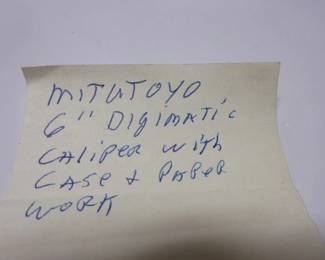 MITUTOYO
6" DIGIMATIC
CALIPER WITH
CASE & PAPER
WORK